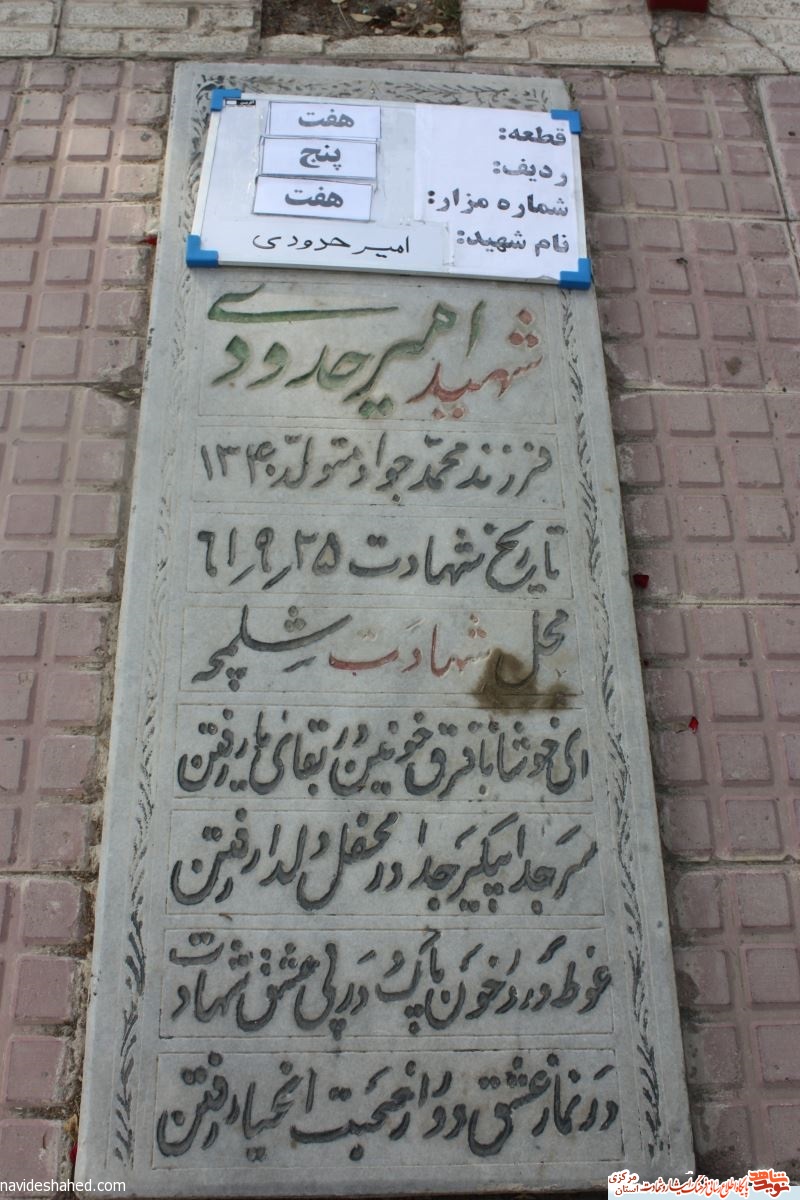 قطعه: هفت
ردیف: پنج
شماره مزار: هفت
نام شهید: امیر حدودی
شهید امیر حدودی
فرزند محمّد جواد متولّد ۱۳۴۰
تاریخ شهادت ۲۵٫۹٫۶۱
محل شهادت شلمچه
ای خوشا با فرق خونین در بقای یار رفتن
سر جدا پیکر جدا در محفل دلدار رفتن
غوطه ور در خون پاک و در پی عشق شهادت
در نماز عشق دور از صحبت اغیار رفتن
navideshahed.com